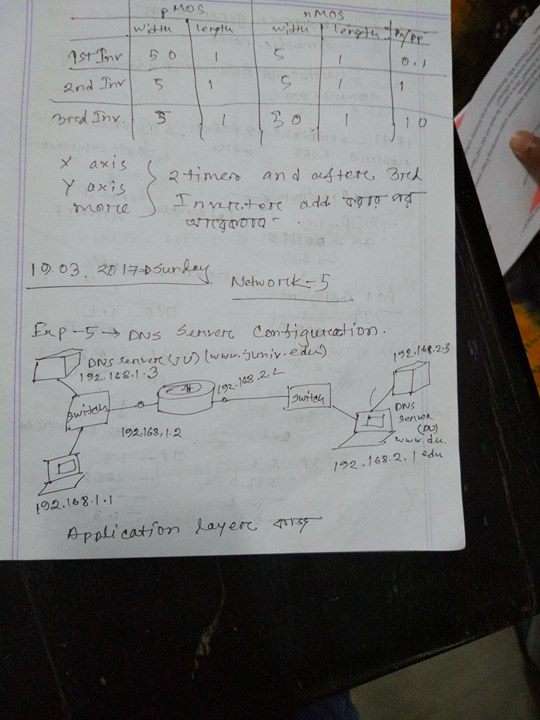 pMOS nMOS
width length width length βn/βp
1st Inv 50 1 5 1 0.1
2nd Inv 5 1 5 1 1
3rd Inv. 5 1 50 1 10
X axis
Y axis
more
2 times and after 3rd
Inverter add করার পর
আরেকবার.
19.03.2017 → Sunday
Network-5
Exp-5 → DNS Server Configuration.
DNS Server (JU) (www.juniv.edu)
192.168.1.3
192.168.2.3
192.168.2.2
switch
switch
192.168.1.2
DNS
Server
(DU)
www.du.
edu
192.168.2.1
192.168.1.1
Application layer কাজ